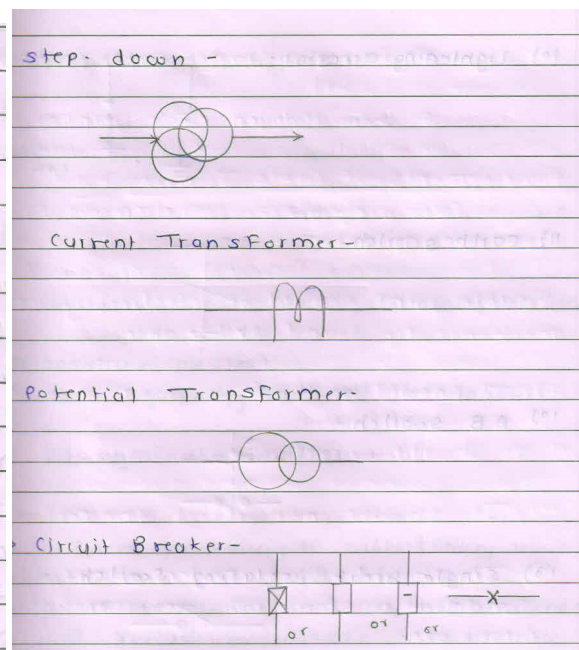 step- down -
Current Transformer-
Potential Transformer-
Circuit Breaker-
or or or